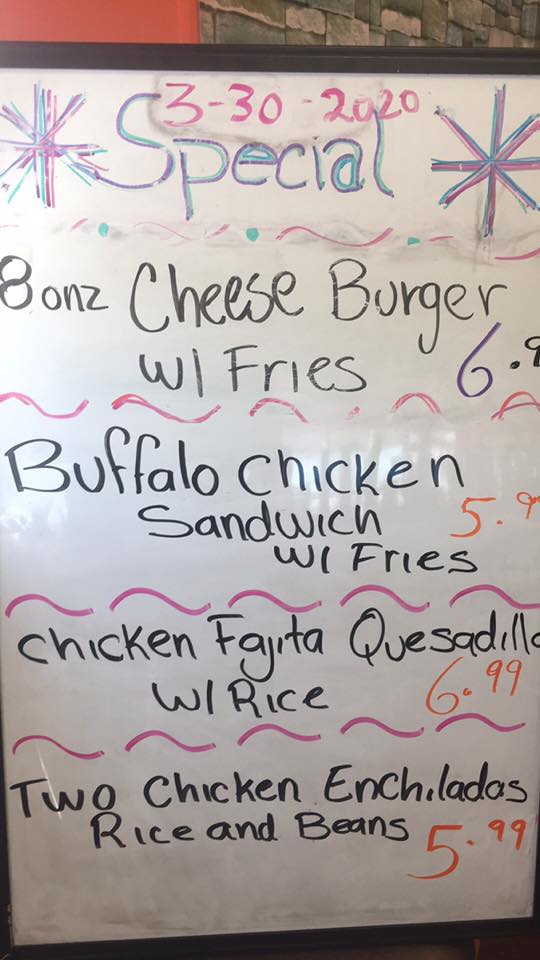 3-30-2020
Special
8onz Cheese Burger
W/ Fries 6.9
Buffalo Chicken
Sandwich 5.9
W/ Fries
Chicken Fajita Quesadilla
W/ Rice 6.99
Two Chicken Enchiladas
Rice and Beans 5.99